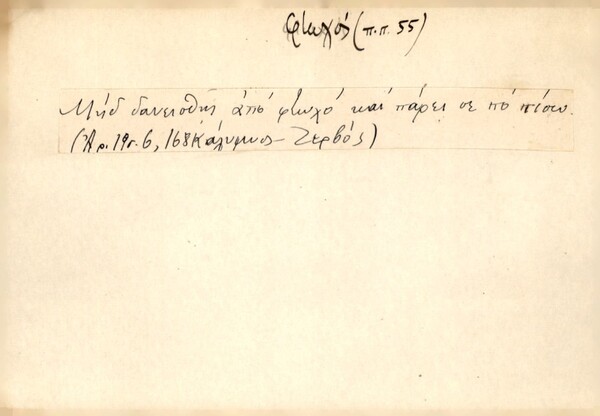 φτωχός (π.π. 55)
Μηδ δανεισθῆς ἀπό φτωχό καί πάρει σε πό πίσω.
(Ἀρ. 19 σ. 6, 168 Κάλυμνος - Ζερβός)